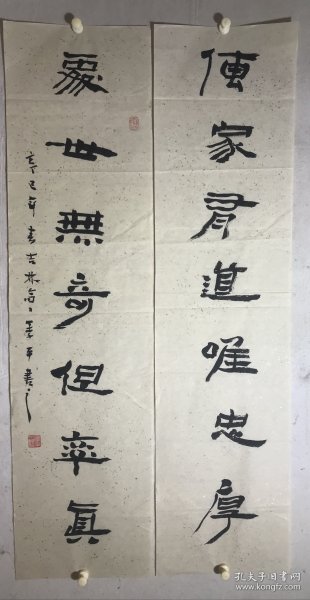 傳家有道唯忠厚
處世無奇但率真
辛巳年
孔夫子旧书网
www.kongfz.com